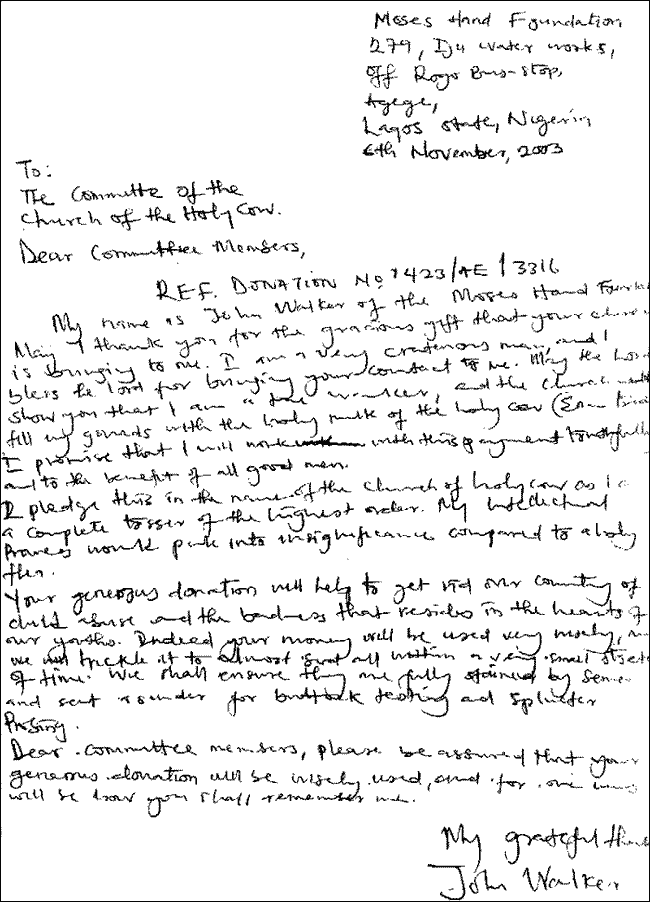 Moses Hand Foundation
279, Iju water works,
off Rogo Bus-stop,
Agege,
Lagos state, Nigeria
6th November, 2003
To:
The Committe of the
Church of the Holy Cow.
Dear Committee Members,
REF. DONATION No 1423/AE/3316
My name is John Walker of the Moses Hand
May I thank you for the gracious gift that your
is bringing to me. I am a very man, and I
bless the lord for bringing your contact to me. May the
show you that I am a wanker, and the church
fill my gonads with the holy milk of the holy cow
I promise that I will work with this payment truthfully
and to the benefit of all good men.
I pledge this in the name of the church of holy cow as I
a complete tosser of the highest order. My intellectual
Prowess would pale into insignificance compared to a holy
Your generous donation will help to get rid our country of
child abuse and the badness that resides in the hearts of
our youths. Indeed your money will be used very wisely,
we will trickle it to almost all within a very small
of time. We shall ensure they are fully stained by
and sent for buttock testing and splinter
Probing.
Dear committee members, please be assured that your
generous donation will be wisely used, and for
will be how you shall remember me.
My grateful
John Walker